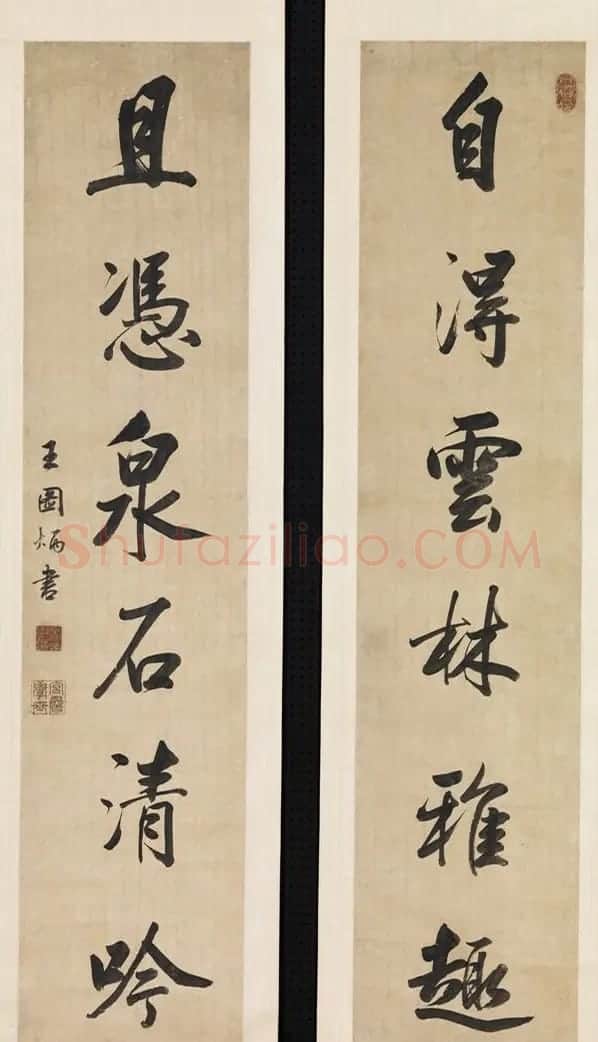 自得雲林雅趣
且憑泉石清吟
王圖炳書
Shufaziliao.COM